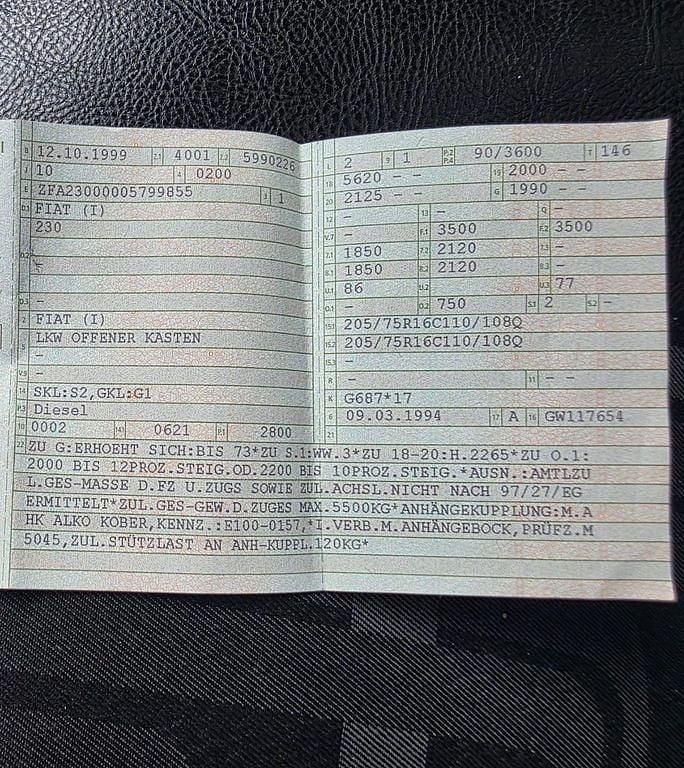 B 12.10.1999 2.1 4001 2.2 5990226
J 10 4 0200
E ZFA23000005799855 3 1
D.1 FIAT (I)
230
D.2
D.3 -
2 FIAT (I)
5 LKW OFFENER KASTEN
-
V.9 -
14 SKL:S2,GKL:G1
P.3 Diesel
10 0002 14.1 0621 P.1 2800
L 2 9 1 P.2 P.4 90/3600 T 146
18 5620 - - 19 2000 - -
20 2125 - - G 1990 - -
12 - 13 - Q -
V.7 - F.1 3500 F.2 3500
7.1 1850 7.2 2120 7.3 -
8.1 1850 8.2 2120 8.3 -
U.1 86 U.2 U.3 77
O.1 - O.2 750 S.1 2 S.2 -
15.1 205/75R16C110/108Q
15.2 205/75R16C110/108Q
15.3 -
R - 11 - -
K G687*17
6 09.03.1994 17 A 16 GW117654
21
22 ZU G:ERHOEHT SICH:BIS 73*ZU S.1:WW.3*ZU 18-20:H.2265*ZU O.1:
2000 BIS 12PROZ.STEIG.OD.2200 BIS 10PROZ.STEIG.*AUSN.:AMTLZU
L.GES-MASSE D.FZ U.ZUGS SOWIE ZUL.ACHSL.NICHT NACH 97/27/EG
ERMITTELT*ZUL.GES-GEW.D.ZUGES MAX.5500KG*ANHÄNGEKUPPLUNG:M.A
HK ALKO KOBER,KENNZ.:E100-0157,*I.VERB.M.ANHÄNGEBOCK,PRÜFZ.M
5045,ZUL.STÜTZLAST AN ANH-KUPPL.120KG*